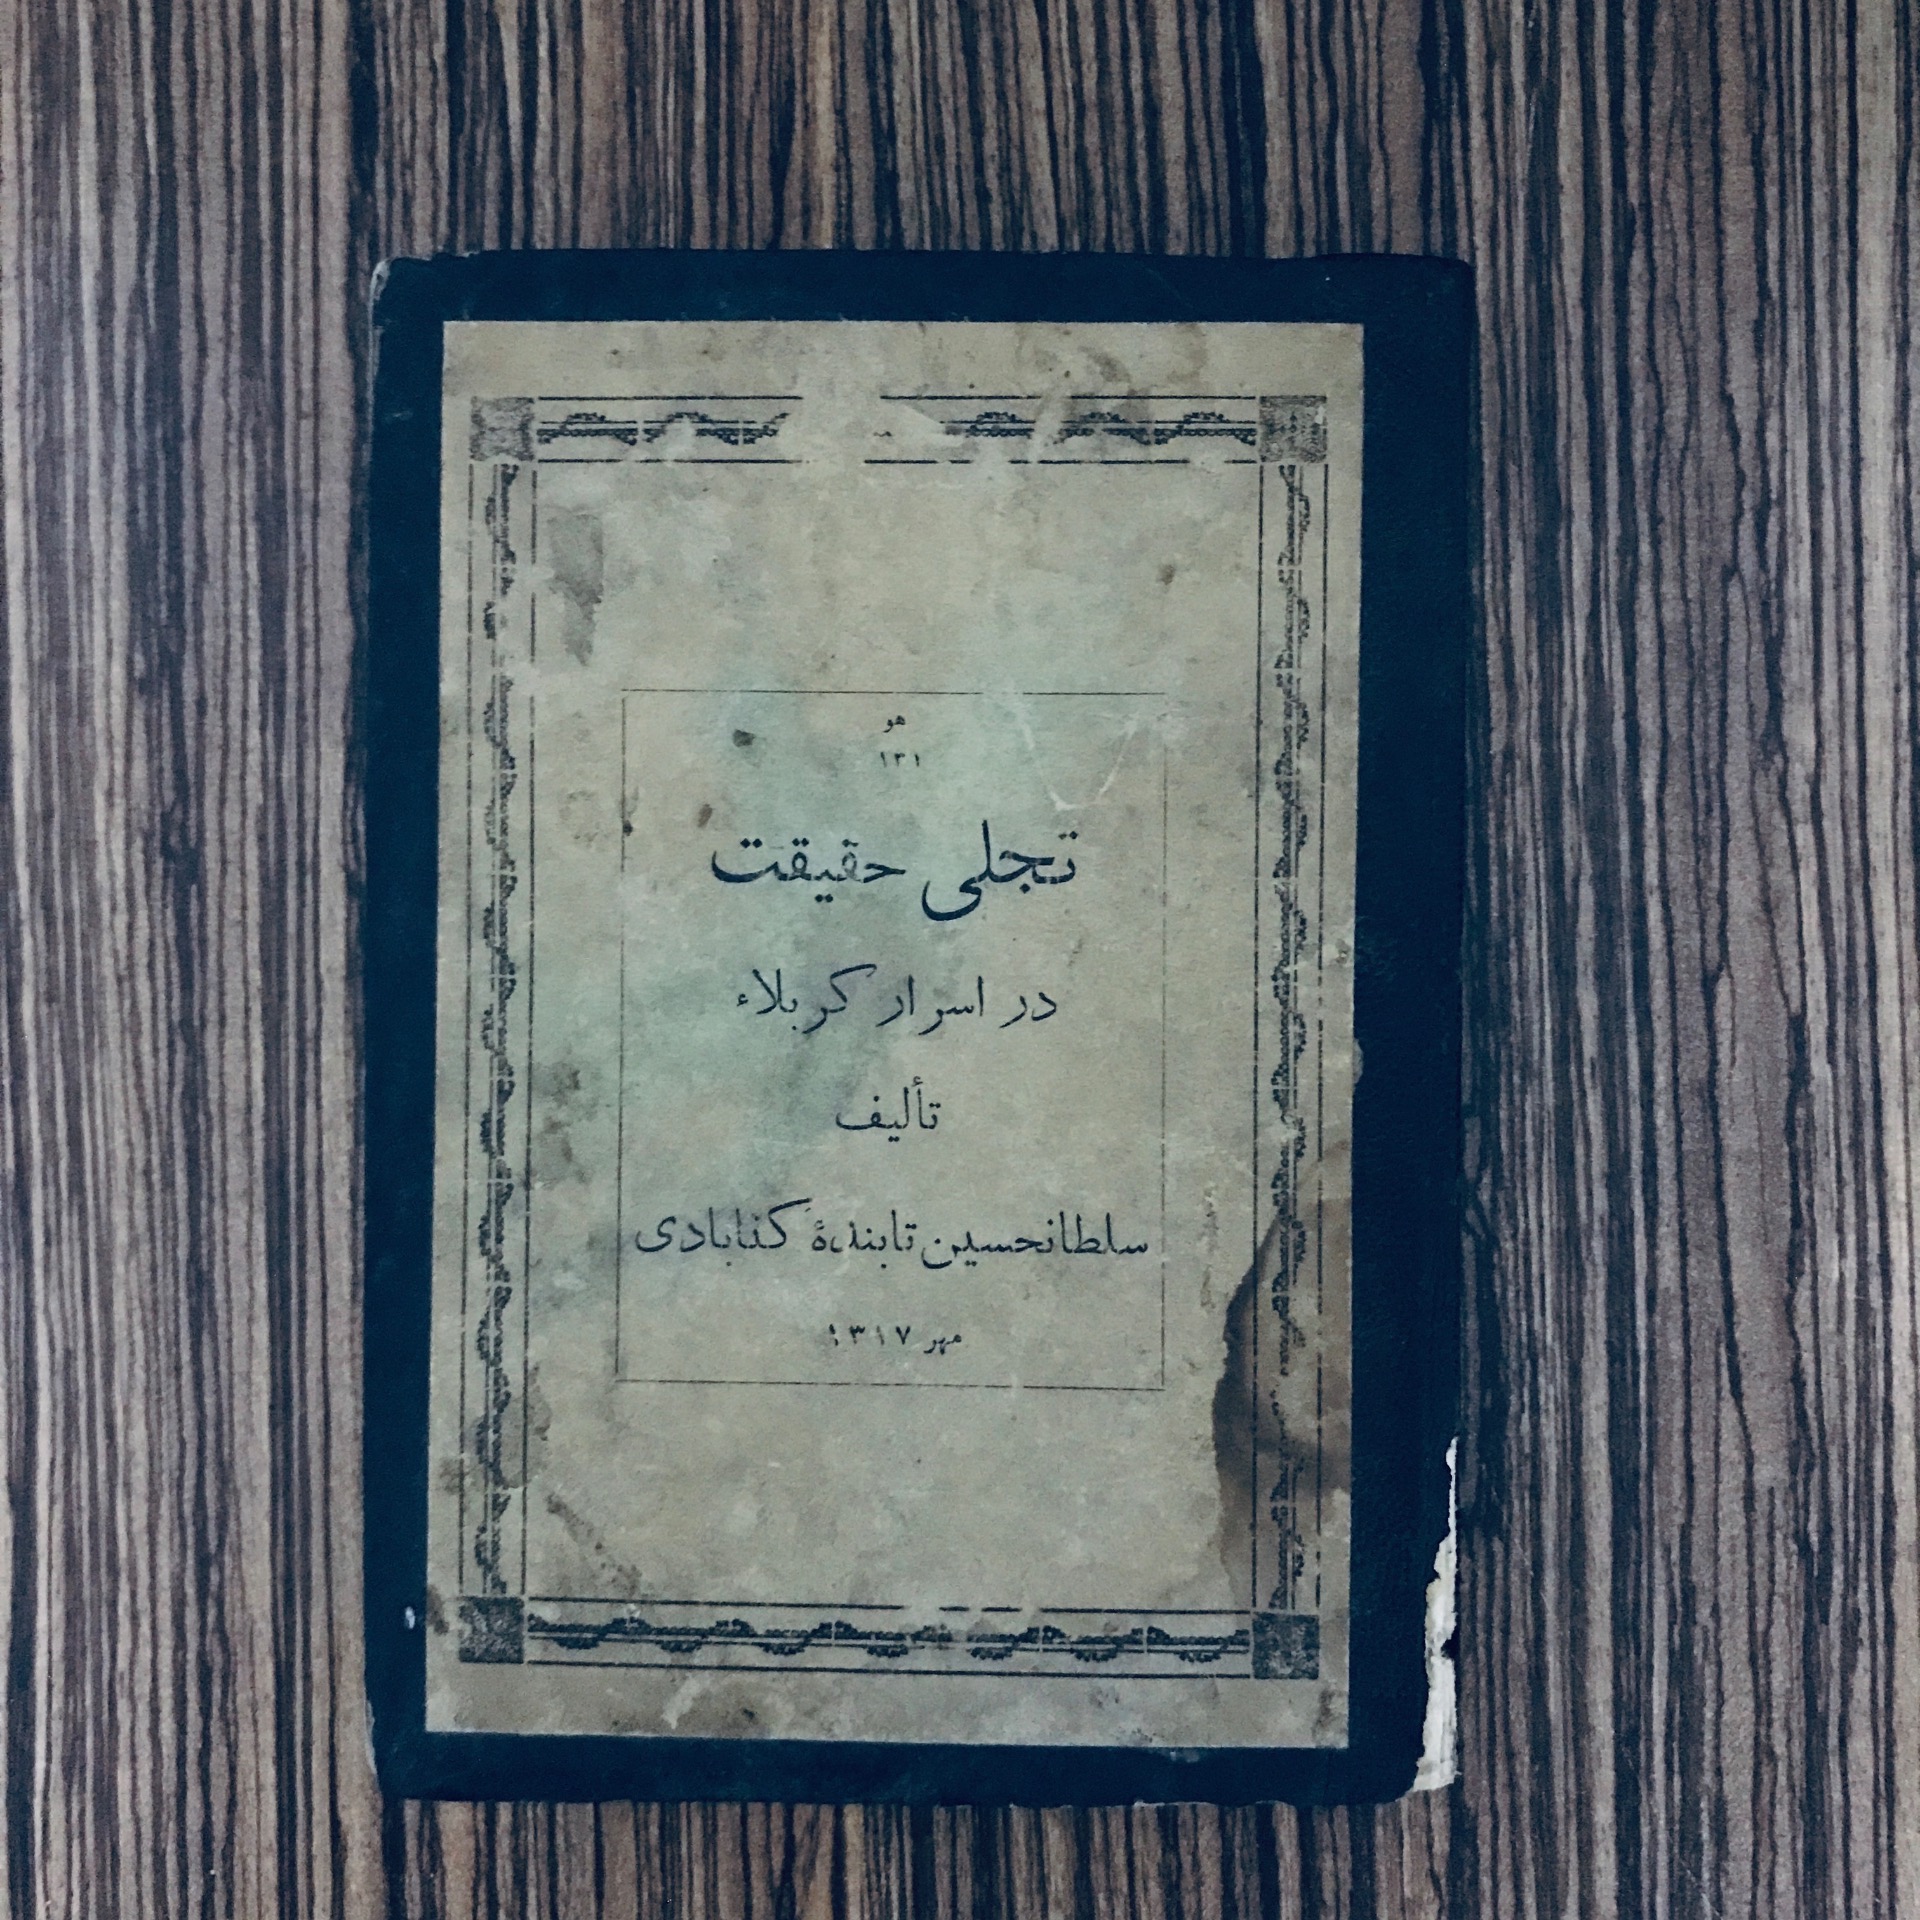 هو
۱۲۱
تجلی حقیقت
در اسرار کربلاء
تألیف
سلطانحسین تابندۀ گنابادی
مهر ۱۳۱۷